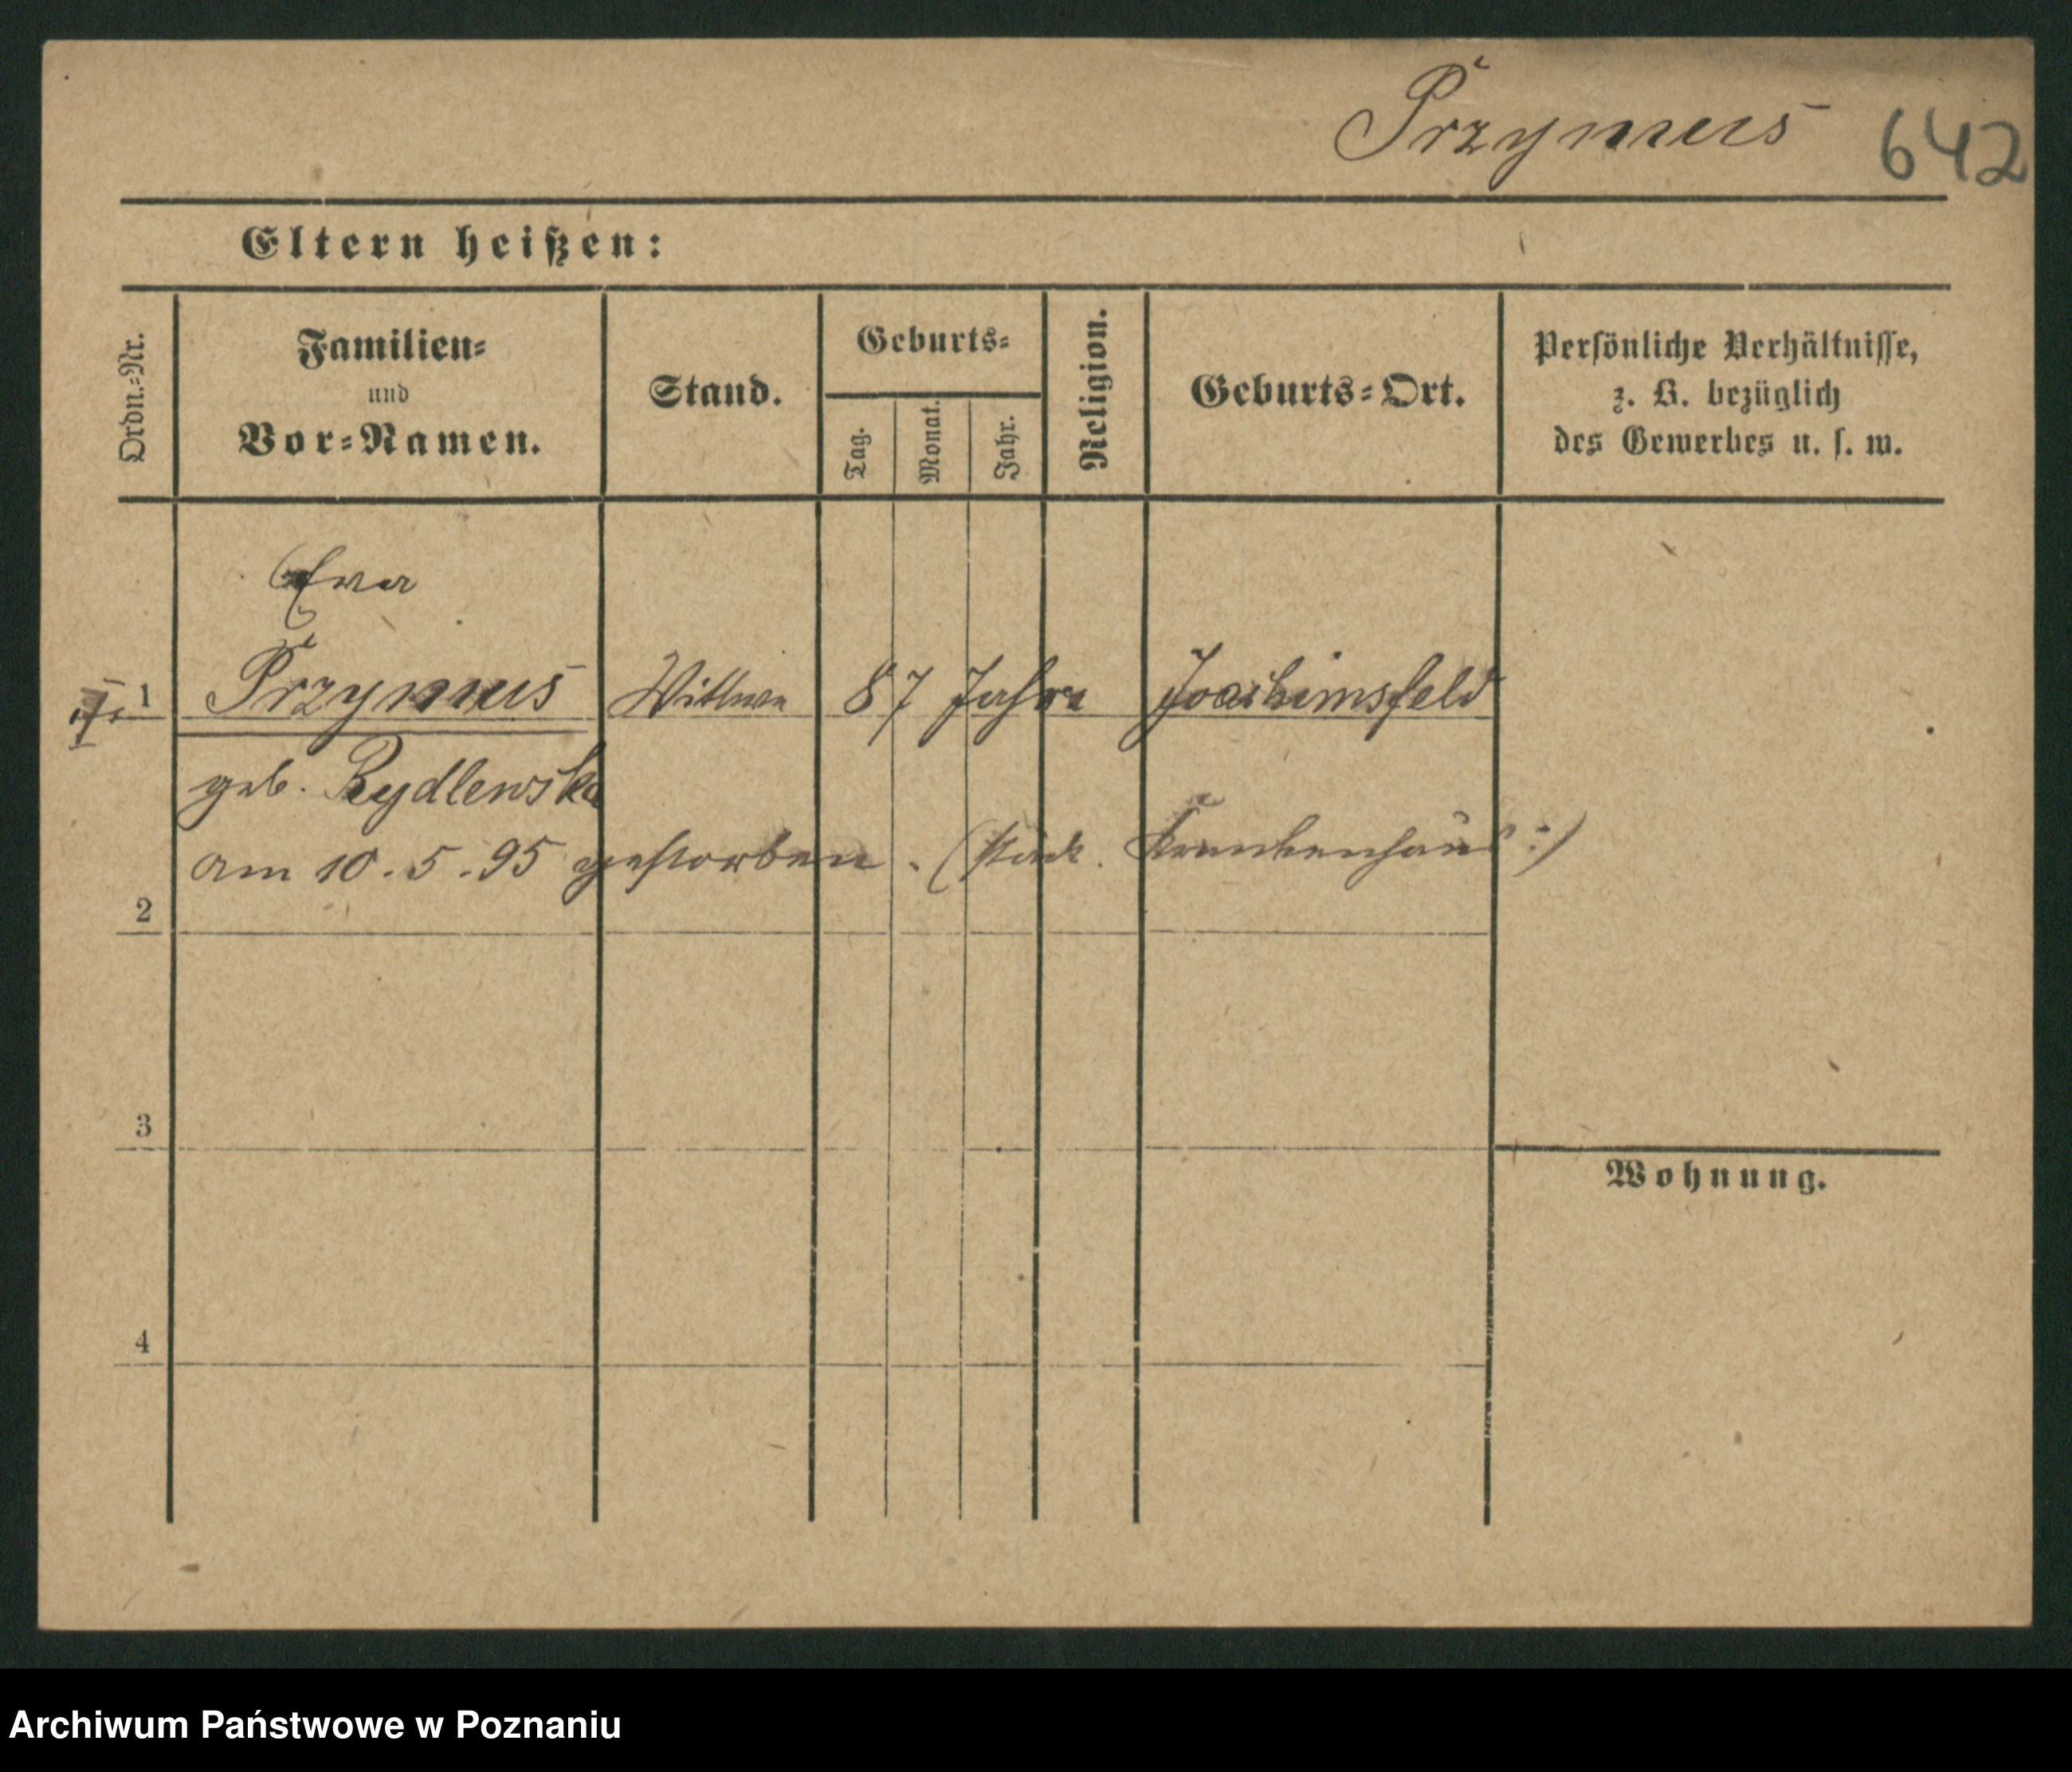 Przymus 642
Eltern heißen:
Ordn.-Nr.
Familien-
und
Vor-Namen.
Stand.
Geburts-
Tag.
Monat.
Jahr.
Religion.
Geburts-Ort.
Persönliche Verhältnisse,
z. B. bezüglich
des Gewerbes u. s. w.
Eva
1 Przymus Wittwe 87 Jahre Joachimsfeld
geb. Rydlewska
am 10.5.95 gestorben. (städt. Krankenhaus:)
2
3
Wohnung.
4
Archiwum Państwowe w Poznaniu